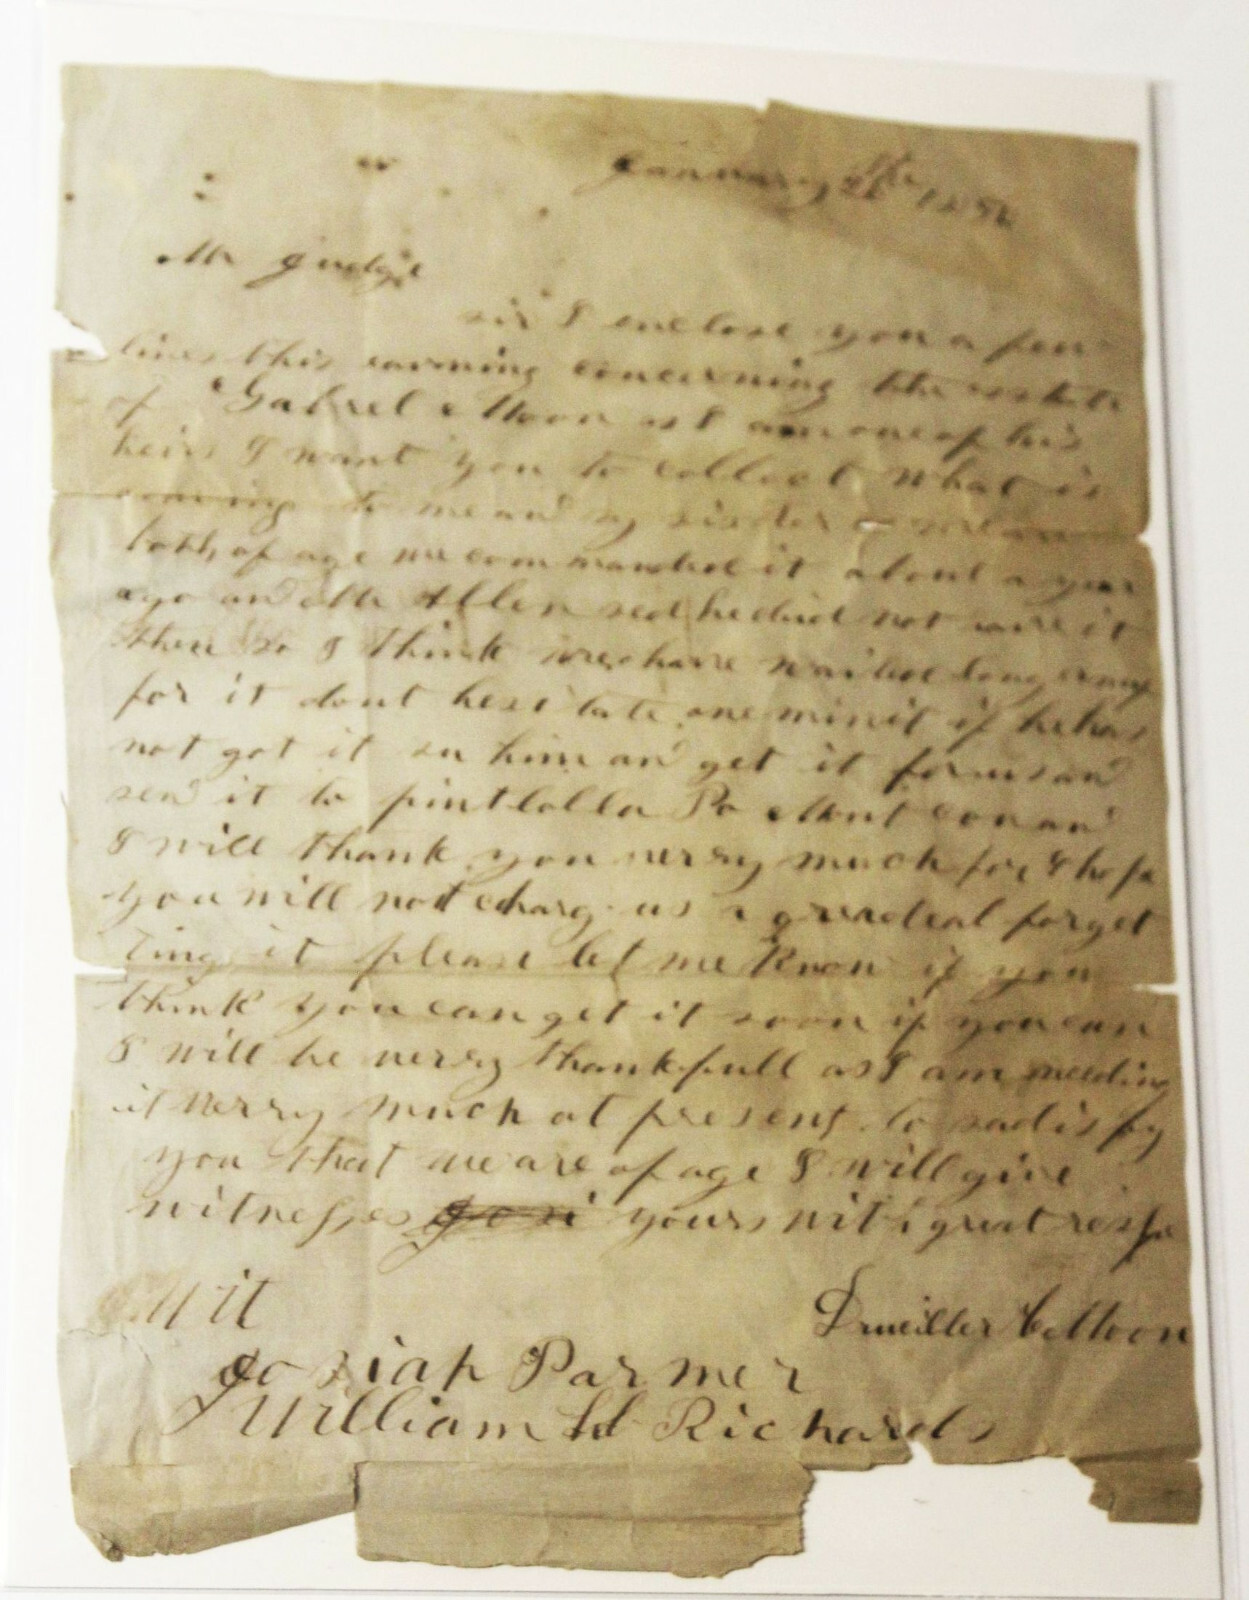 January
Mr Judge
sir I enclose you a few
lines this earning concerning the estate
of Gabrel Moon as I am one of his
heirs I want you to collect what is
coming to me and my sister
both of age we commanded it about a year
ago and Mr Allen sed he did not have it
then so I think we have waited long
for it dont hesitate one minit if he has
not got it su him and get it for us and
send it to pintlalla Po Mont co and
I will thank you verry much for I hope
you will not charg us a grate deal for get
ting it please let me know if you
think you can get it soon if you can
I will be verry thankfull as I am needing
it verry much at present to sadisfy
you that we are of age I will give
witnesses yours with great respe
Wit
Druciller C Moon
Josiah Parmer
William H Richards